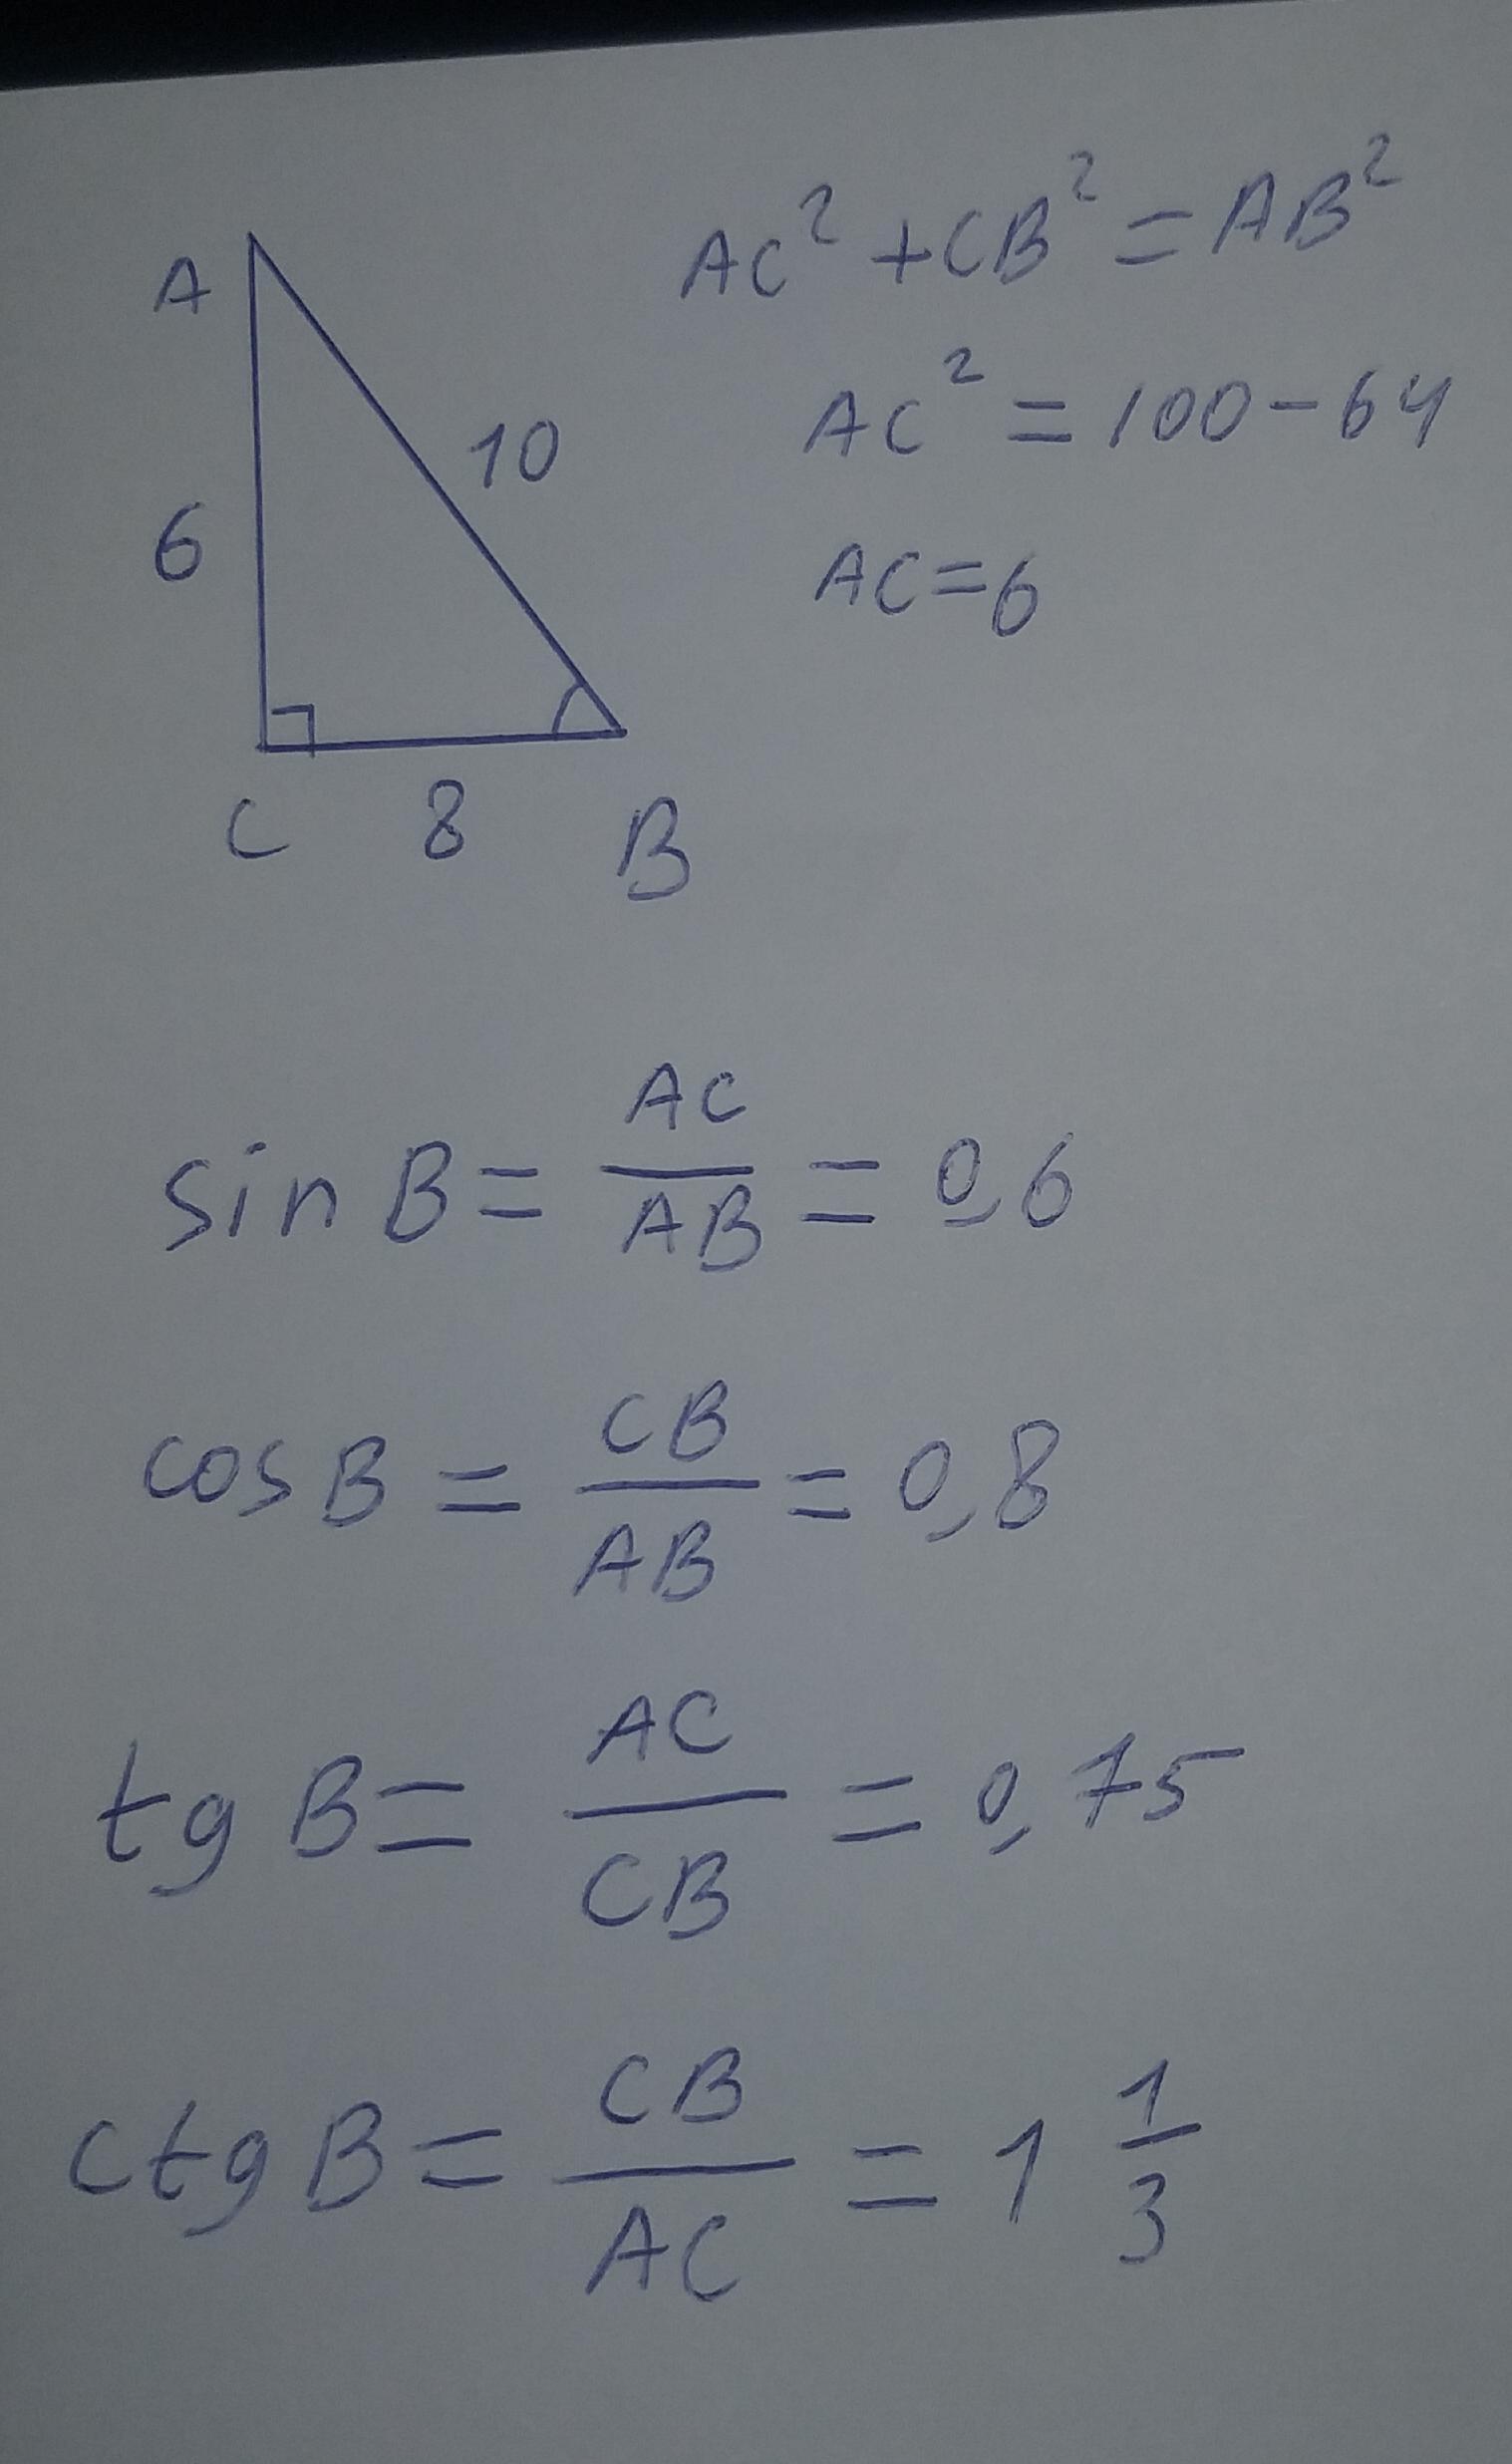 A
6
10
C 8 B
AC² + CB² = AB²
AC² = 100 - 64
AC = 6
sin B = AC/AB = 0,6
cos B = CB/AB = 0,8
tg B = AC/CB = 0,75
ctg B = CB/AC = 1 1/3